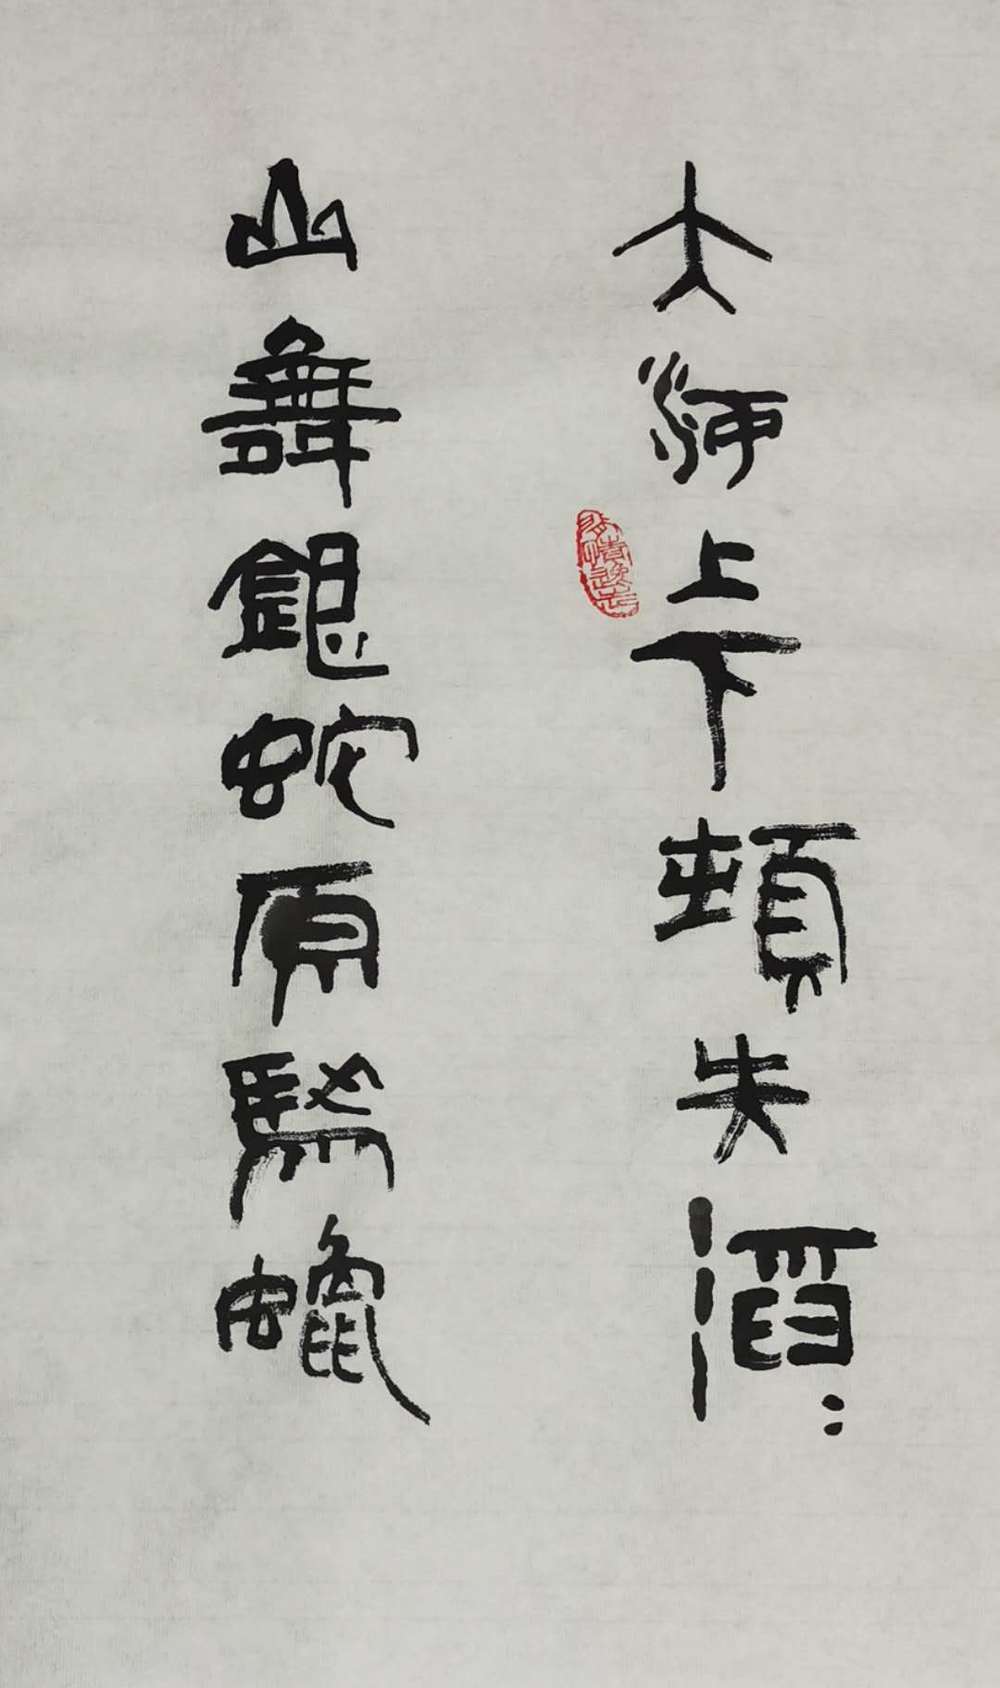 大河上下頓失滔〻
山舞銀蛇原馳蠟